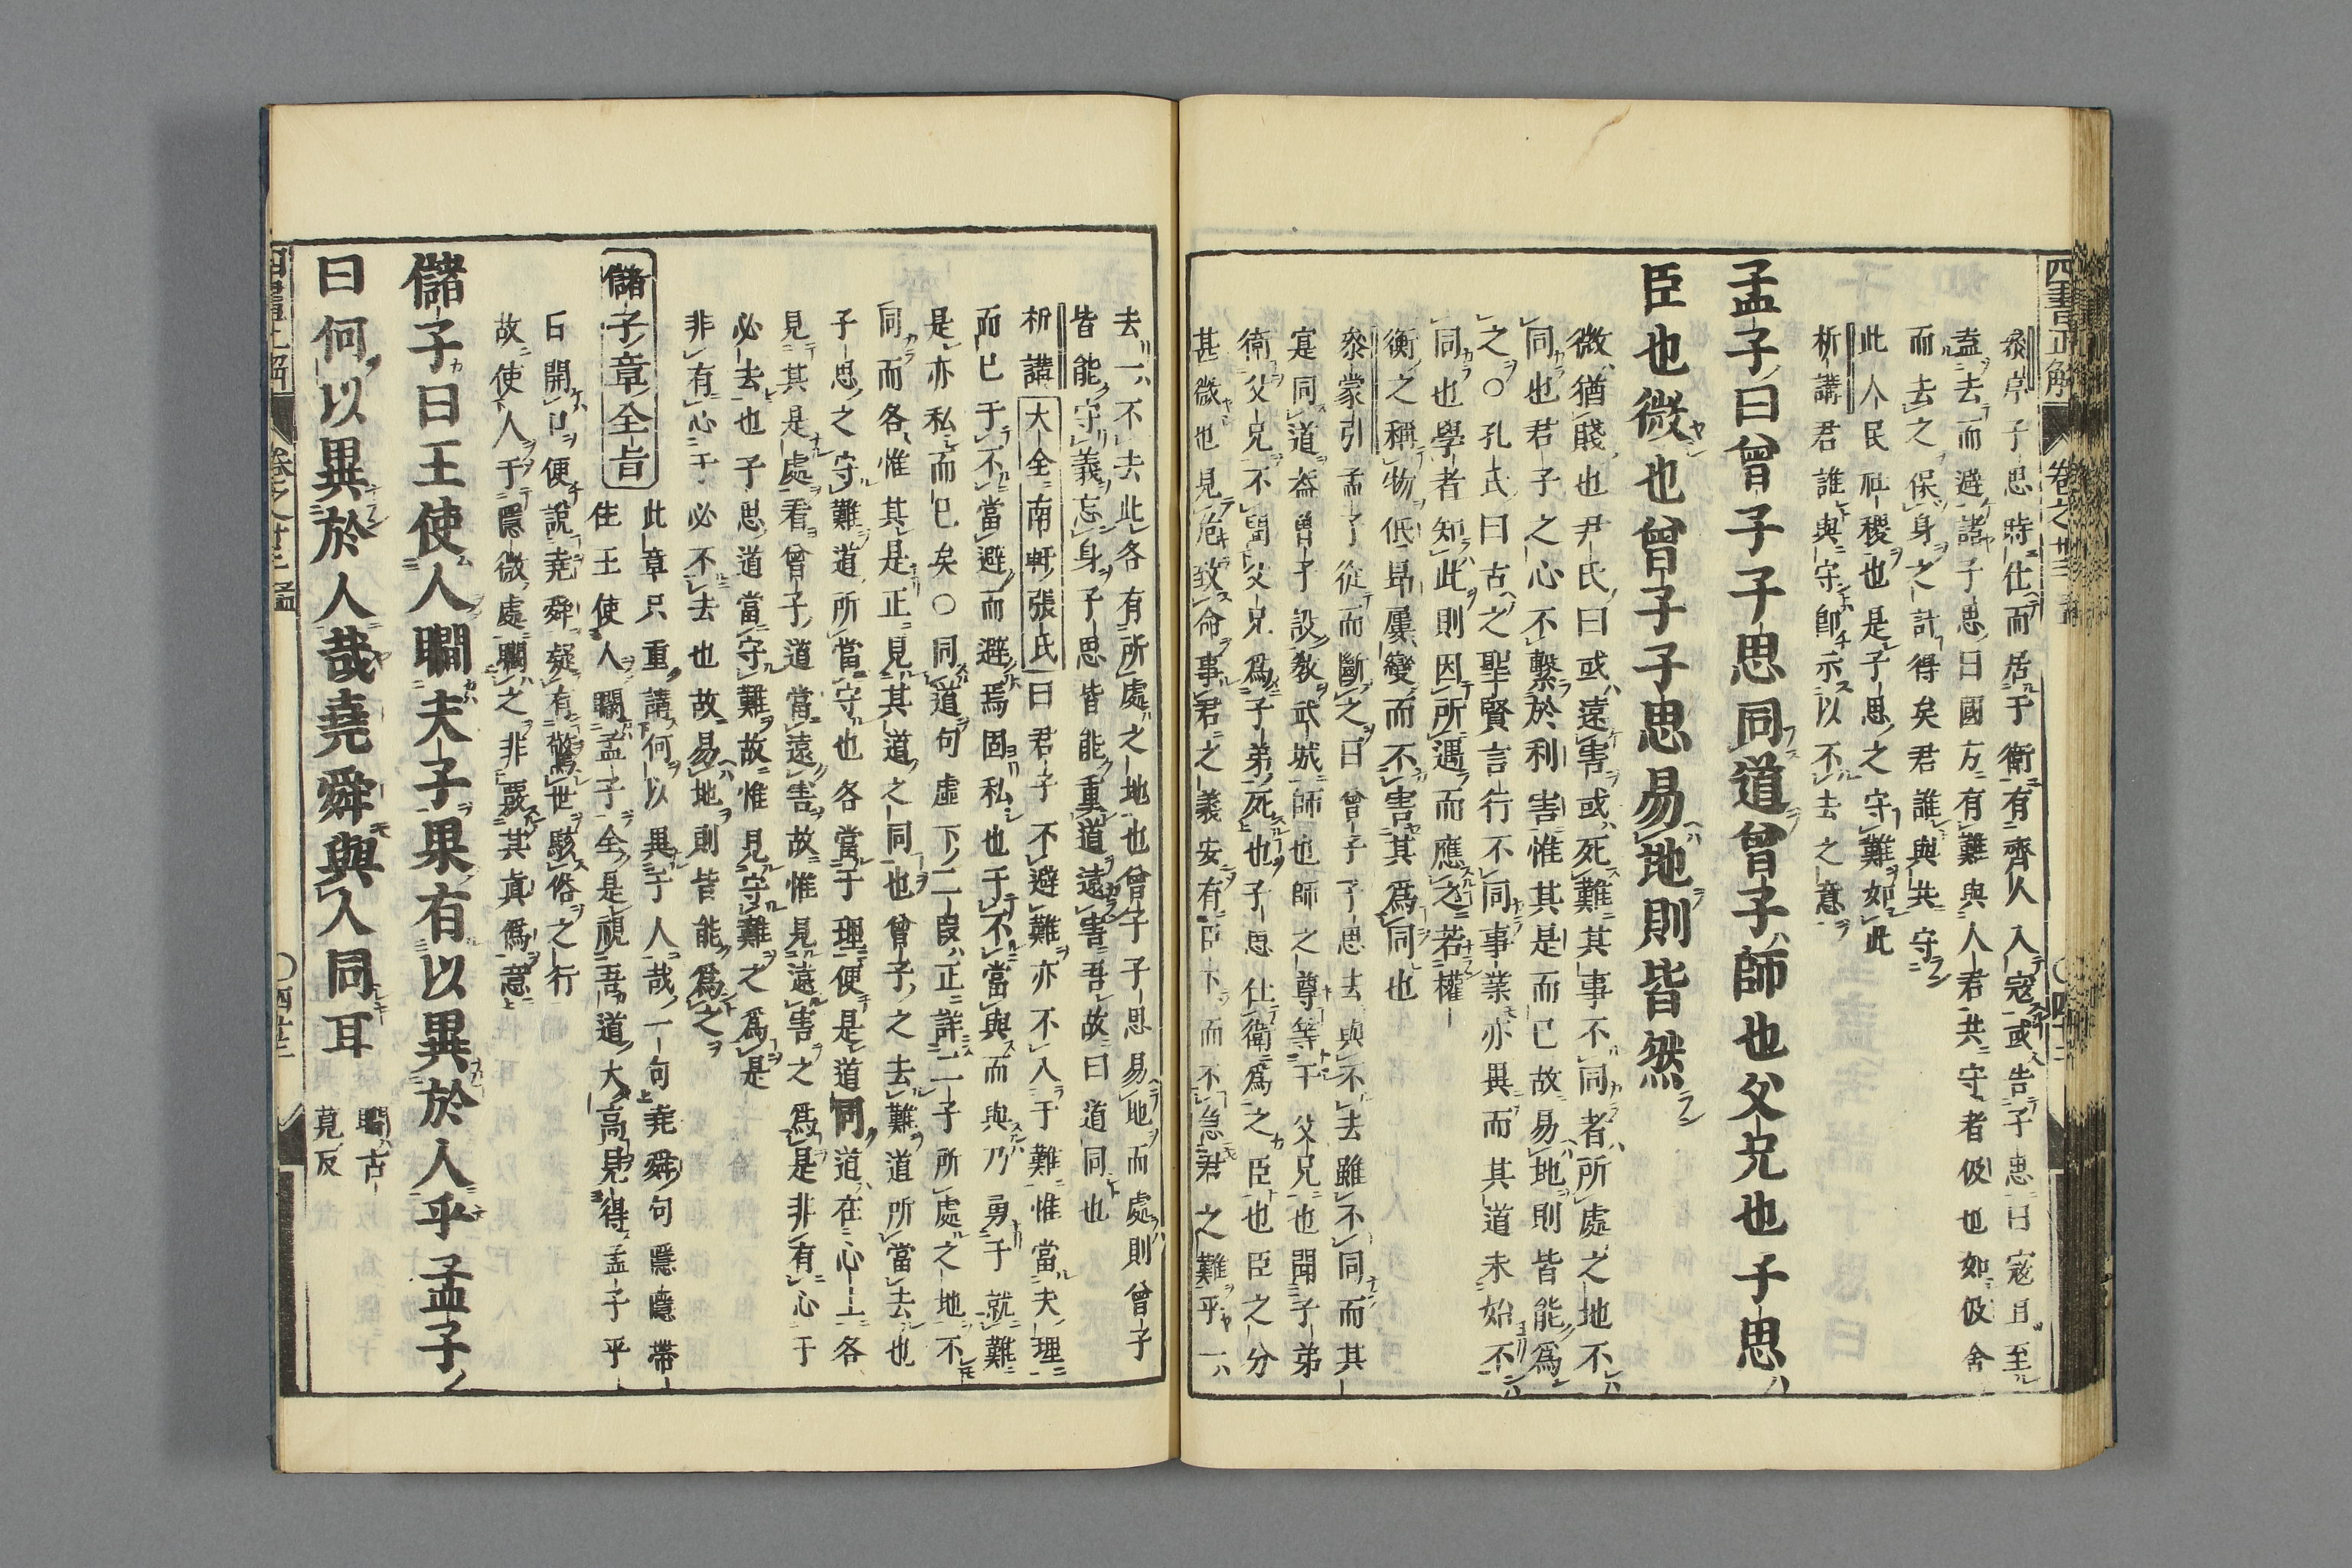 四書正解
卷之廿三 孟
叅序子思時仕而居于衛有齊人入寇或告子思曰寇且至
盍去而避諸子思曰國方有難與人君共守者伋也如伋舍
而去之保身之計得矣君誰與共守
此人民社稷也是子思之守難如此
析講君誰與守卽示以不去之意
孟子曰曾子子思同道曾子師也父兄也子思
臣也微也曾子子思易地則皆然
微猶賤也尹氏曰或遠害或死難其事不同者所處之地不
同也君子之心不繫於利害惟其是而已故易地則皆能爲
之○孔氏曰古之聖賢言行不同事業亦異而其道未始不
同也學者知此則因所遇而應之若權
衡之稱物低昻屢變而不害其爲同也
叅蒙引孟子從而斷之曰曾子子思去與不去雖不同而其
寔同道盖曾子設敎武城師也師之尊等于父兄也聞子弟
衛父兄不聞父兄爲子弟死也子思仕衛爲之臣也臣之分
甚微也見危致命事君之義安有臣下而不急君之難乎一
去一不去此各有所處之地也曾子子思易地而處則曾子
皆能守義忘身子思皆能重道遠害吾故曰道同也
析講大全南軒張氏曰君子不避難亦不入于難惟當夫理
而已于不當避而避焉固私也于不當與而與乃勇于就難
是亦私而已矣○同道句虛下二段正詳二子所處之地不
同而各惟其是正見其道之同也曾子之去難道所當去也
子思之守難道所當守也各當于理便是道同道在心上各
見其是處看曾子道當遠害故惟見遠害之爲是非有心于
必去也子思道當守難故惟見守難之爲是
非有心于必不去也故易地則皆能爲之
儲子章全旨
此章只重講何以異于人哉一句堯舜句隱隱帶
住王使人瞷孟子全是視吾道大高見得孟子平
日開口便說堯舜疑有驚世駭俗之行
故使人于隱微處瞷之非覈其眞僞意
儲子曰王使人瞷夫子果有以異於人乎孟子
曰何以異於人哉堯舜與人同耳
瞷古
莧反
四書正解
卷之廿三 孟
○四十三